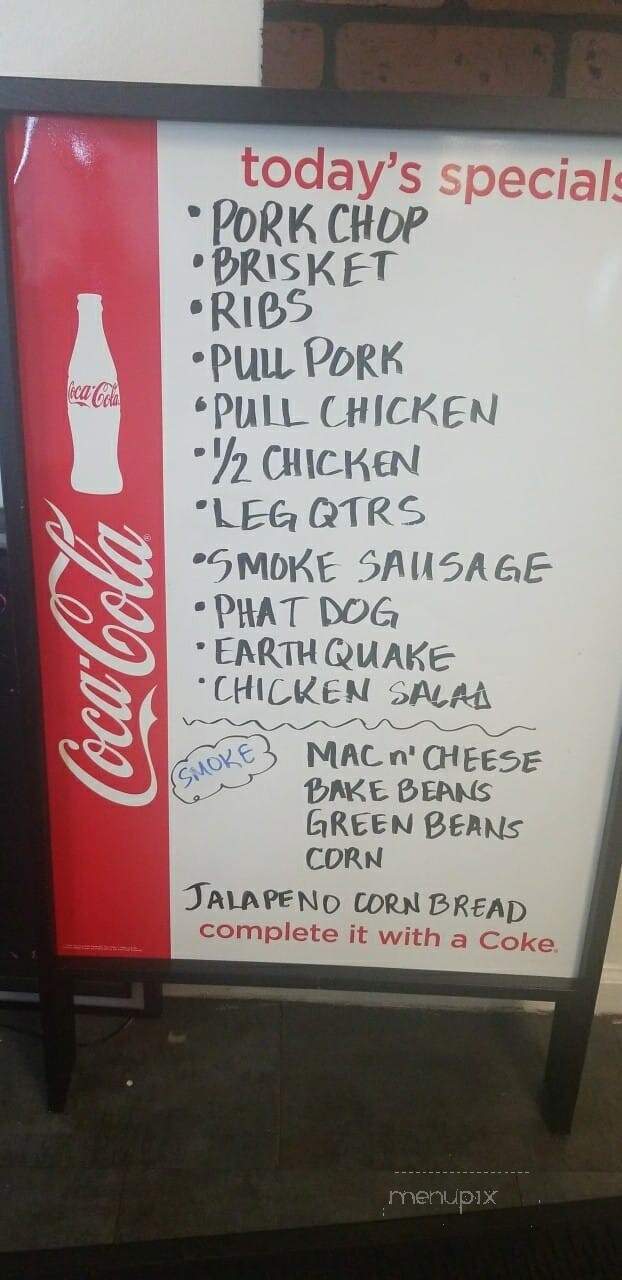 today's specials
• PORK CHOP
• BRISKET
• RIBS
• PULL PORK
• PULL CHICKEN
• 1/2 CHICKEN
• LEG QTRS
• SMOKE SAUSAGE
• PHAT DOG
• EARTH QUAKE
• CHICKEN SALAD
SMOKE
MAC n' CHEESE
BAKE BEANS
GREEN BEANS
CORN
JALAPENO CORN BREAD
complete it with a Coke.
Coca-Cola
Coca-Cola®
menupix